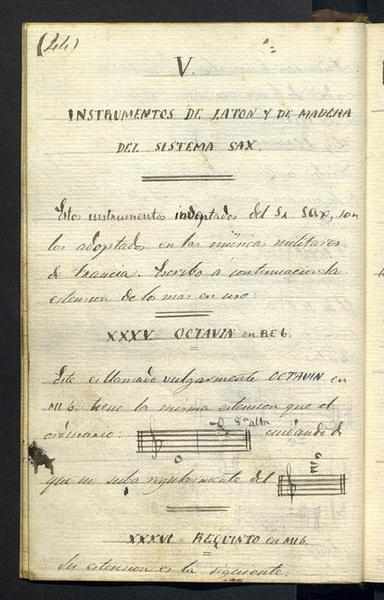 (44)
V.
INSTRUMENTOS DE LATON Y DE MADERA
DEL SISTEMA SAX.
Estos instrumentos del Sr. SAX, son
los adoptados en las músicas militares
de Francia. Escribo á continuacion la
estension de los mas en uso:
XXXV OCTAVIN en RE b.
Este es llamado vulgarmente OCTAVIN en
MI b. tiene la misma estension que el
ordinario: 8ª alta cuidando de
que no suba regularmente del
XXXVI REQUINTO en MI b.
Su estension es la siguiente: